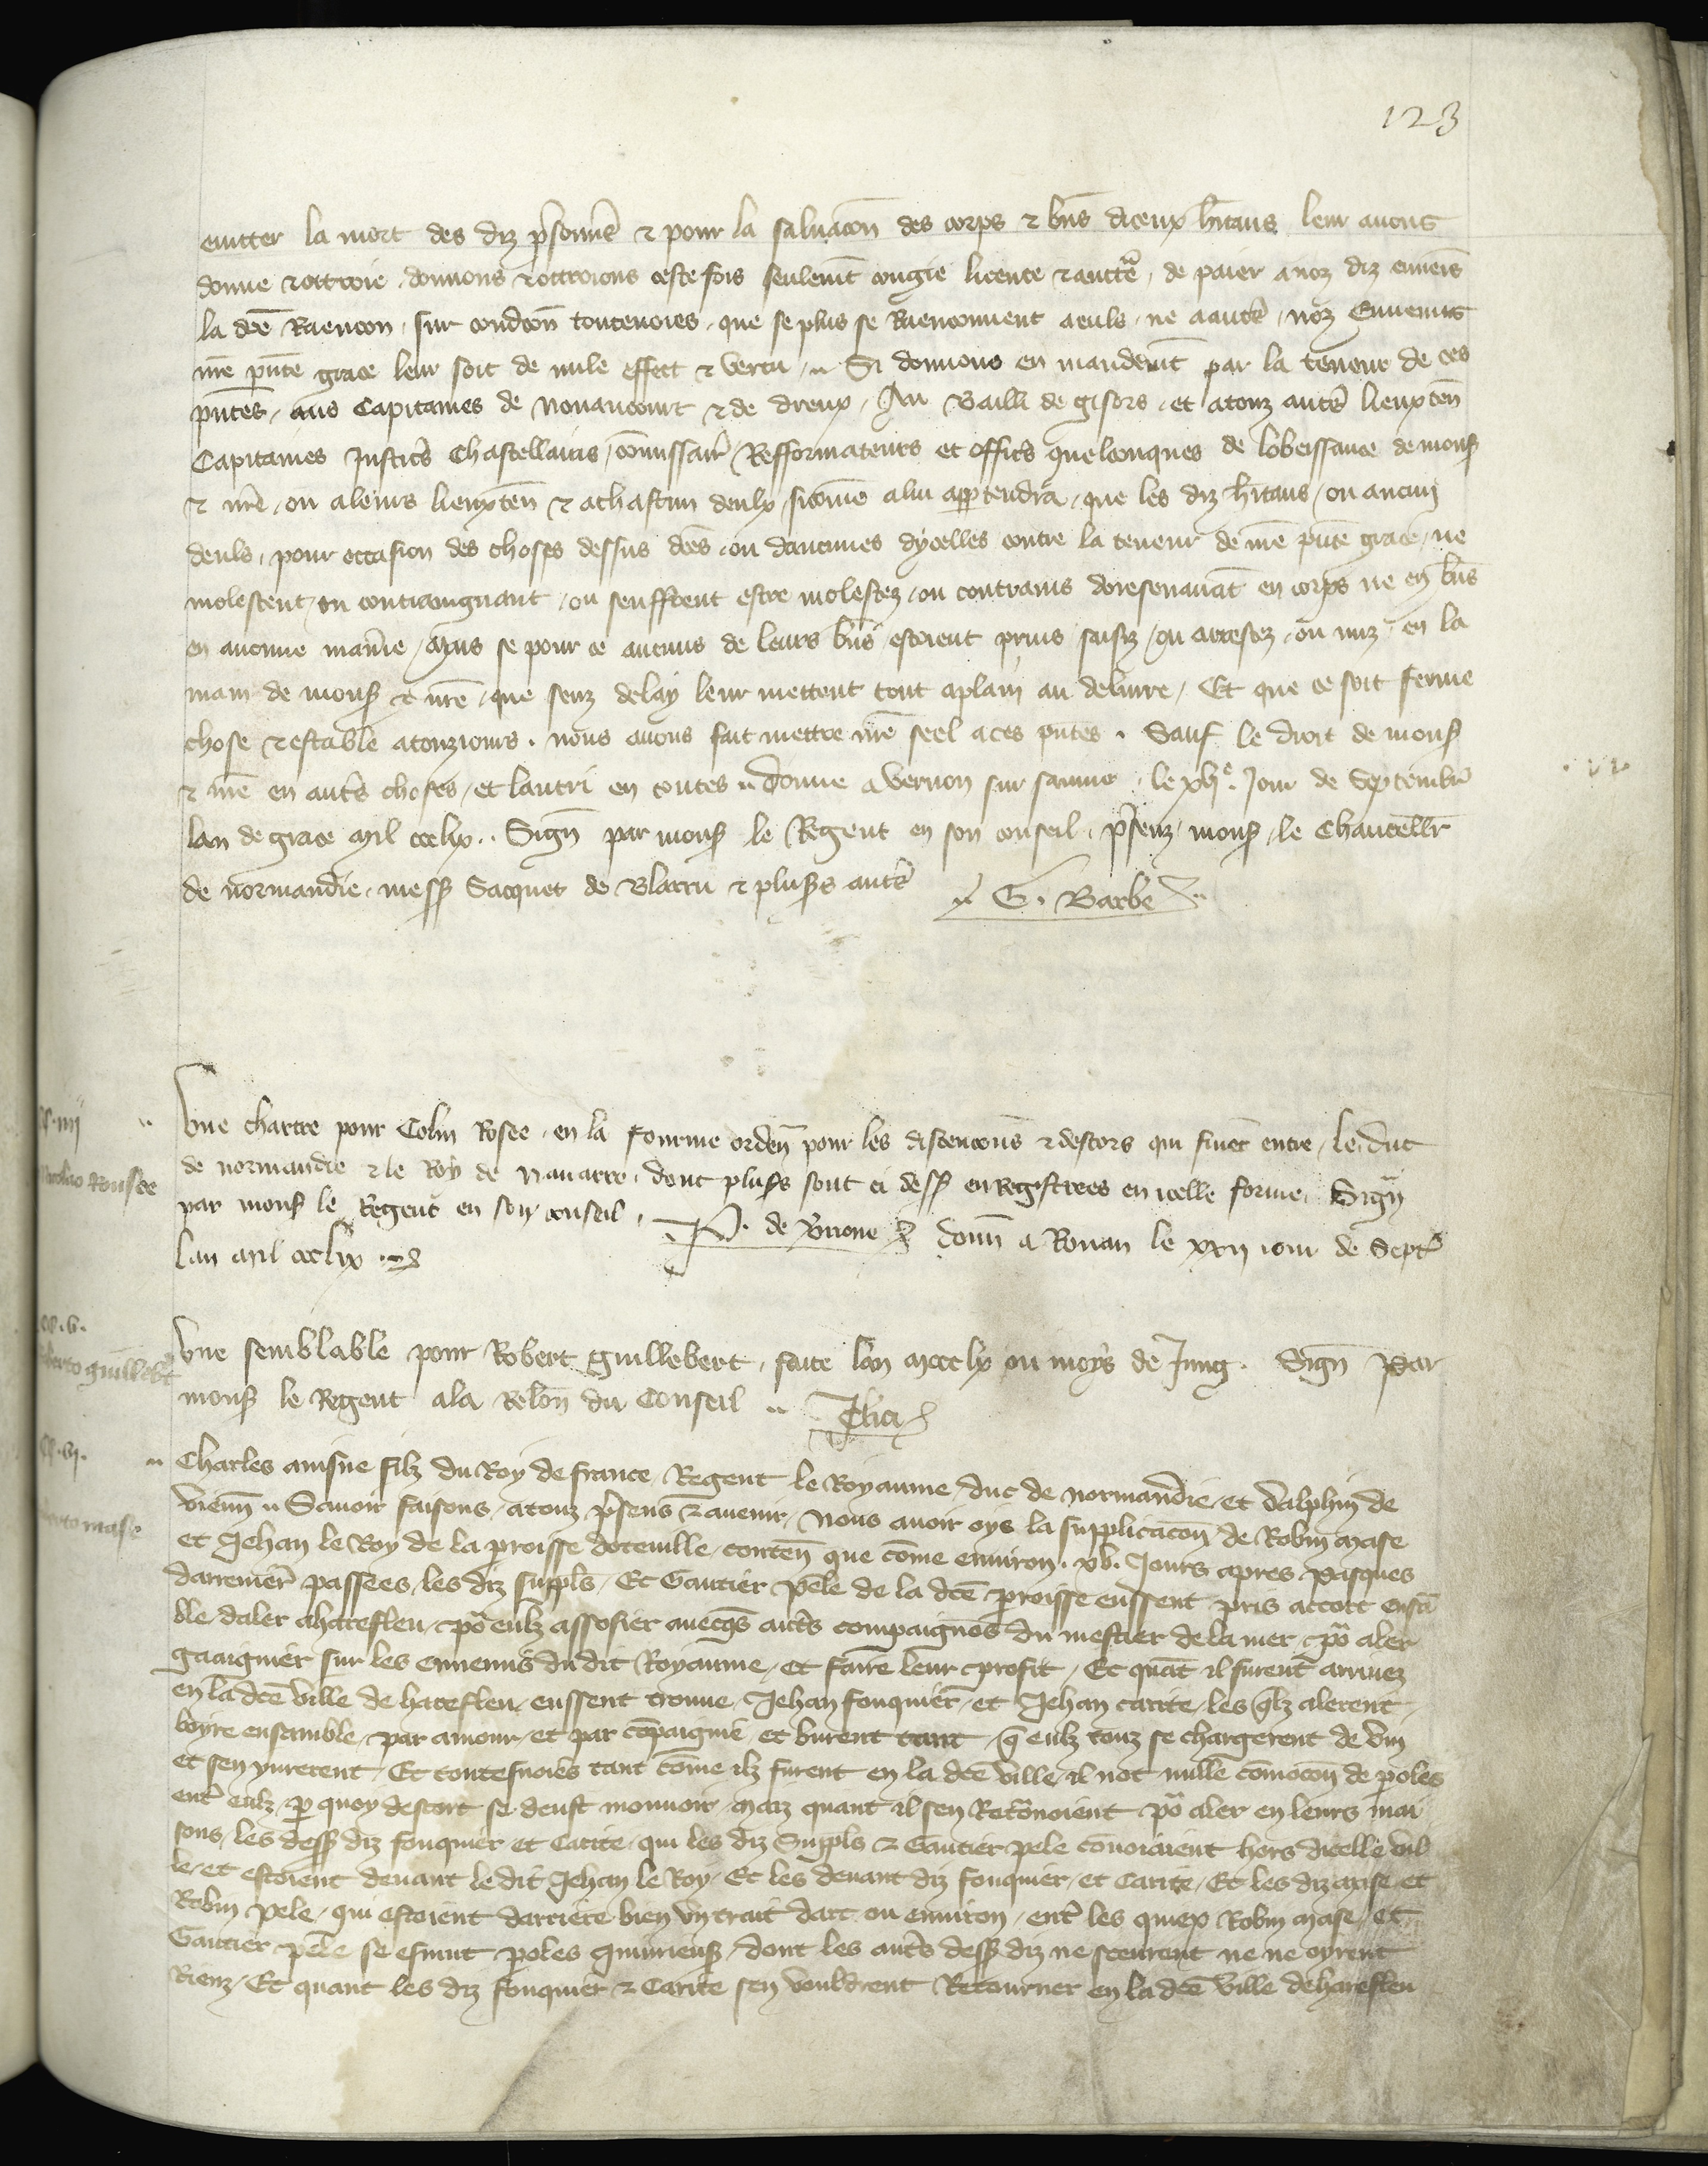 123
euitter la mort des diz prsonnes & pour la saluacon des corps & bns diceux hitans leur auons
donne & ottroie, donnons & ottroions ceste fois seulemt congie licence & auctte, de paier a noz diz ennemis
la dce Raencon, sur condicon toutenoies, que se plus se Raenconnent a euls, ne a autrs, noz Ennemis
nre pnte grace leur soit de nulle effect & vertu .. Si donnons en mandemt par la teneur de ces
pntes, aus Capitaines de Nonancourt & de dreux, Au Bailli de gisors, et a touz autrs lieuxten
Capitaines Justicrs Chastellains, comissairs, Refformateurs et officrs quelconques de lobeissance de mons
& nre, ou a leurs lieuxten & a chascun deulx, sicomme a lui appartendra, que les diz hitans, ou aucun
deuls, pour occasion des choses dessus dces, ou daucunes dycelles contre la teneur de nre pnte grace, ne
molestent, ou contraingnant, ou seuffrent estre molestez, ou contrains doresenauat en corps ne en bns
en aucune manre, Mais se pour ce aucuns de leurs bns estoient prins, saisiz, ou arrestez, ou miz, en la
main de mons & nre, que senz delay leur mettent tout a plain au deliure, Et que ce soit ferme
chose & estable a touziours. nous auons fait mettre nre seel a ces pntes. Sauf le droit de mons
& nre en autrs choses, et lautri en toutes .. Donne a Vernon sur saine, le xvje. Jour de Septembre
lan de grace Mil ccclix.. Sign par mons le Regent en son conseil, prsenz, mons, le Chancellr
de normandie, mess Sacquet de Blarru & plusrs autrs .. G. Barbe
iiij
Vne chartre pour Colin Rosee, en la fourme orden pour les discencons & descors qui furet entre, le duc
Nicolao Roussee
de normandie & le Roy de Nauarre, dont plusrs sont ci dess enRegistrees en icelle forme, Sign
par mons le Regent en son conseil, P. de Donn a Rouan le xxij iour de Sept
lan Mil ccclix
v.
Vne semblable pour Robert Guillebert, faite lan Mccclx ou moys de Jung. Sign Par
Roberto guillebt
mons le Regent a la Relon du Conseil ..
vj.
Charles ainsne filz du Roy de france Regent le Royaume, duc de normandie, et dalphin de
vienn .. Sauoir faisons, a touz prsens & auenir, Nous auoir oye la supplicacon de Robin Mase
Roberto mase
et Jehan le Roy de la proisse doteuille, conten que come enuiron. xv. Jours apres Pasques
darrenier passees, les diz suppls, Et Gautier Pele de la dce proisse eussent pris accort ensam
ble, daler a hareflen, po eulz assosier auecqs autrs compaignos du mestier de la mer, po aler
gaaignier sur les ennemis du dit Royaume, et faire leur profit, Et quat il furent arriuez
en la dce ville de hareflen, eussent trouue, Jehan fouquier, et Jehan carite, les qlz alerent,
boyre ensamble, par amour, et par copaignie, et burent tant q eulz touz se chargerent de vin
et sen yurerent, Et toutesuoies tant come ilz furent en la dce ville, il not nulle comocon de proles
entr eulz, p quoy descort se deust mouuoir, Maiz quant il sen Retornoient po aler en leurs mai
sons, les dess diz fouquier et Carite, qui les diz Suppls & Gautier Pele conuoiaient hors dicelle vil
le, et estoient deuant le dit Jehan le Roy, Et les deuant diz fouquier, et Carite, Et les diz Mase et
Robin Pele, qui estoient darriere bien vn trait darc ou enuiron, entr les quiex Robin Mase, et
Gautier Pele se esmut proles iniurieuses, dont les autrs dess diz ne sceurent ne ne oyrent
Rienz, Et quant les diz fouquier & Carite sen vouldrent Retourner en la dce ville de hareflen